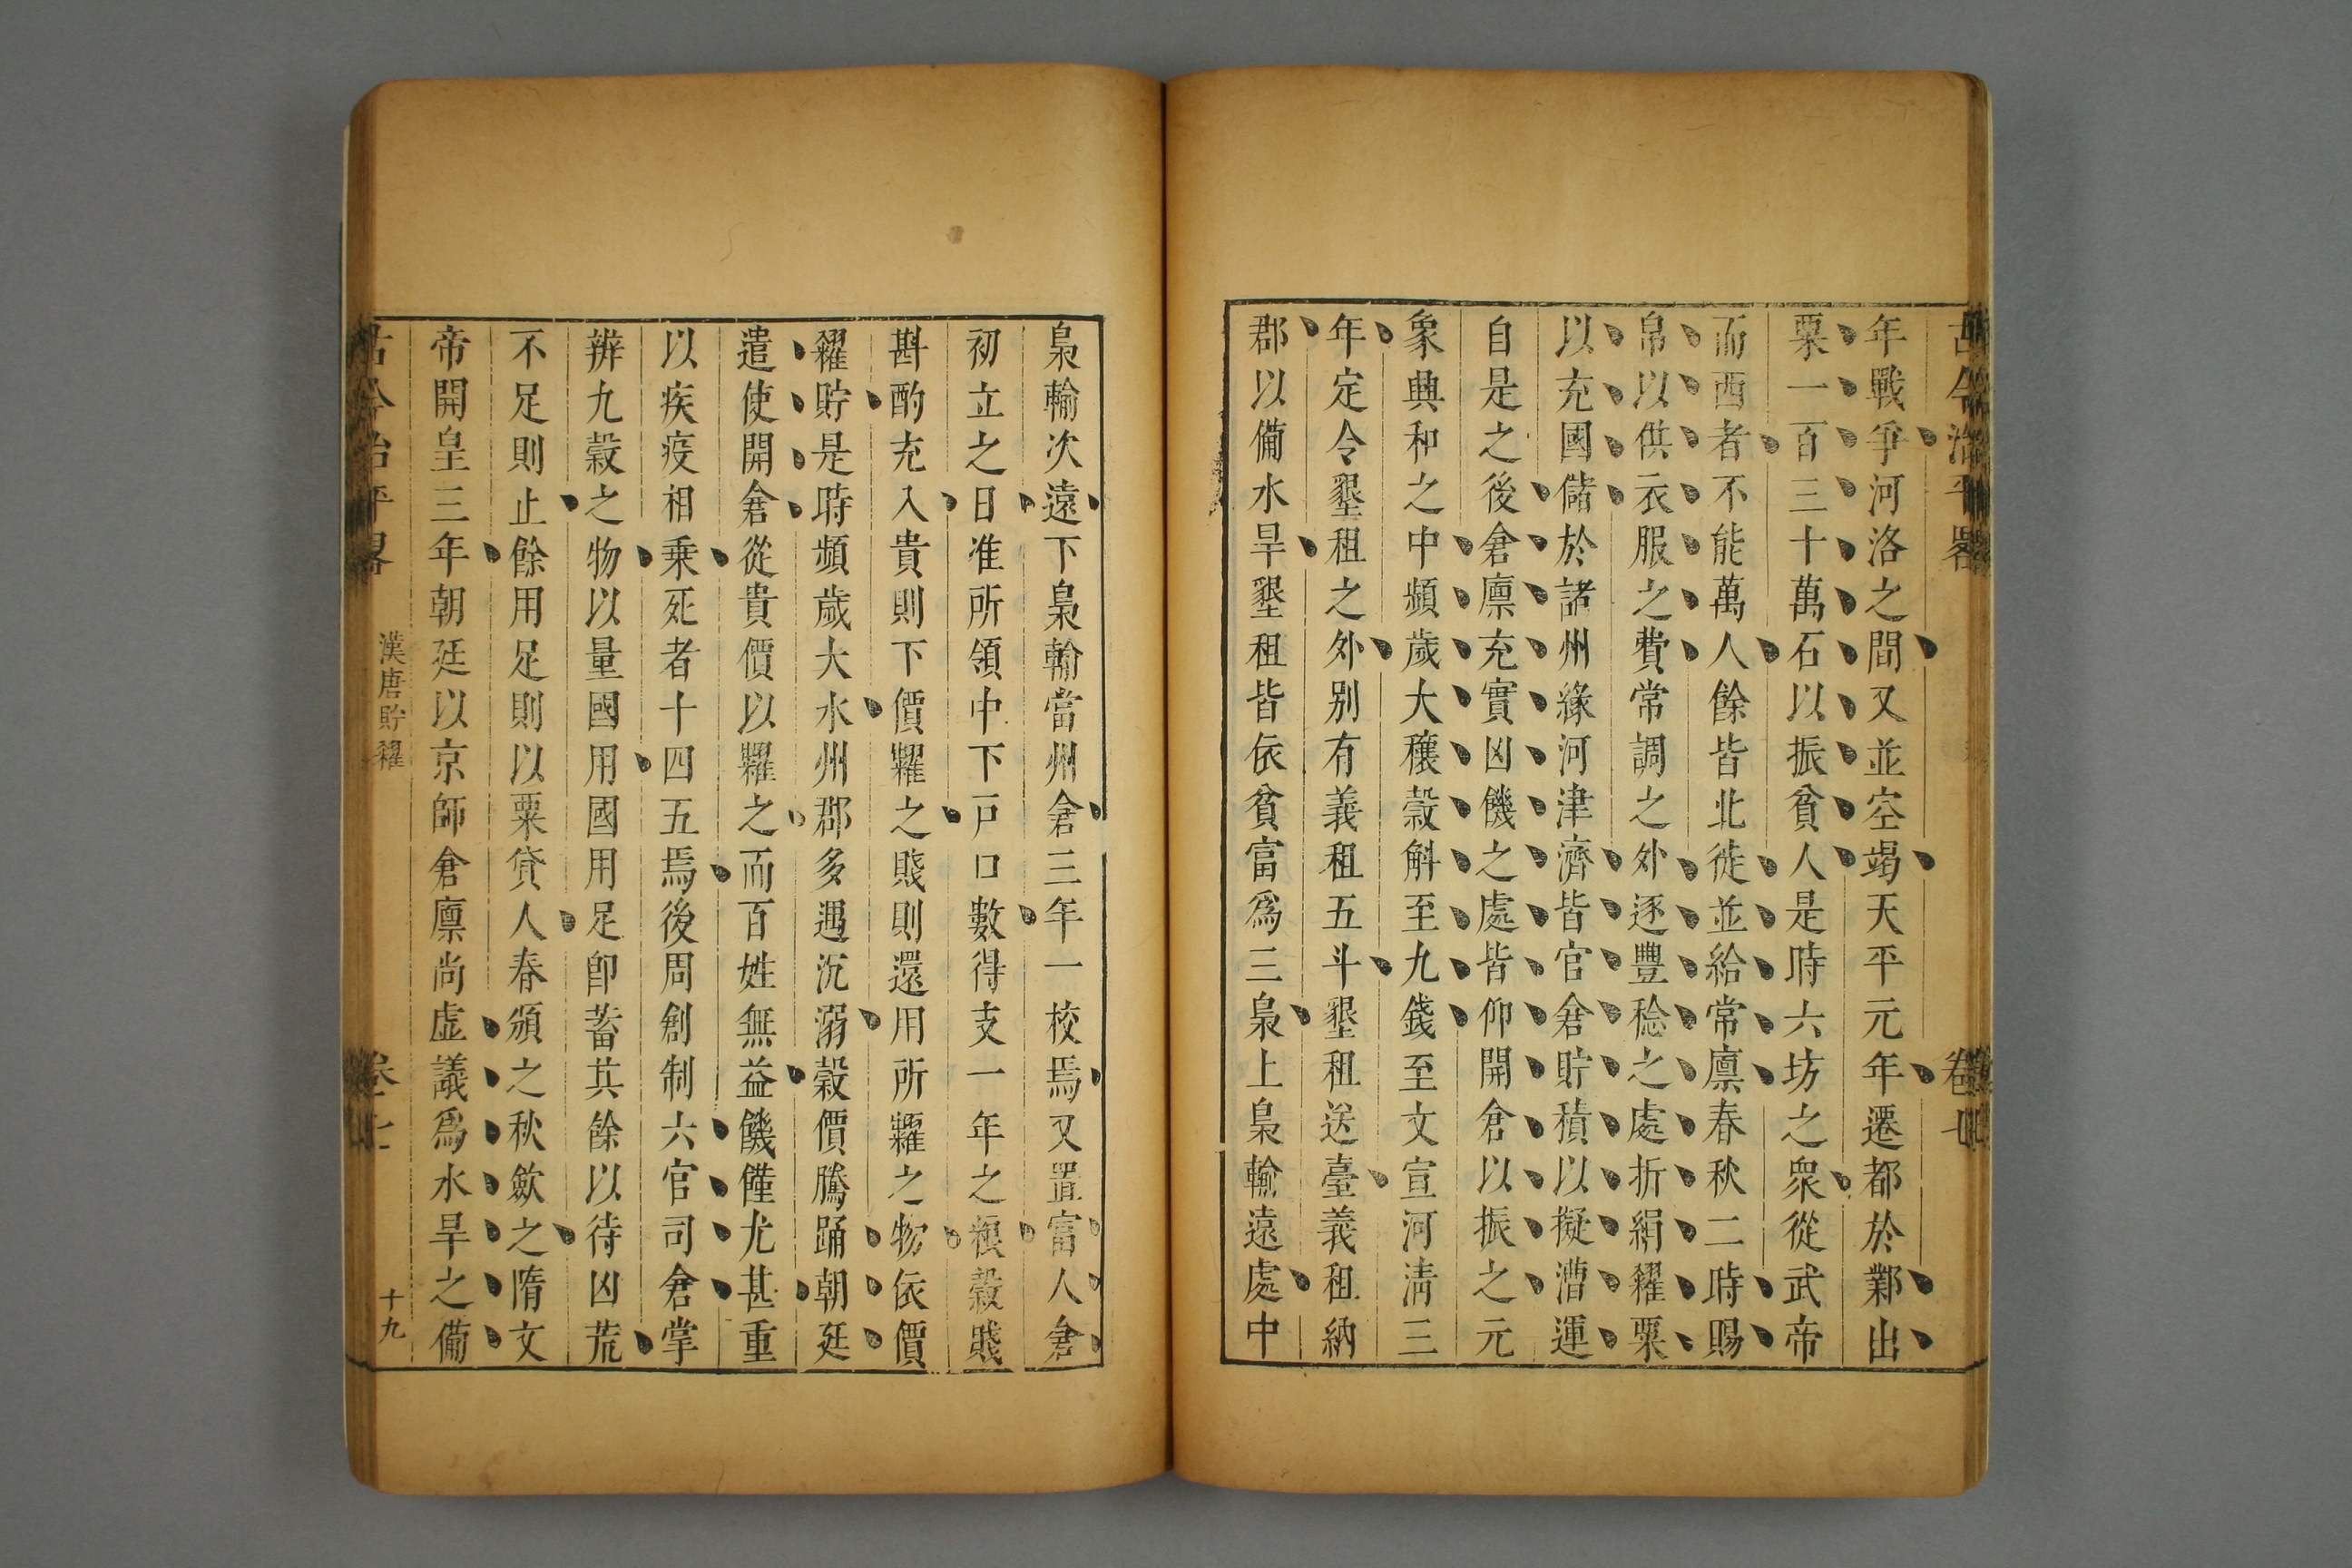 古今治平畧
卷七
年戰爭河洛之間又並空竭天平元年遷都於鄴出
粟一百三十萬石以振貧人是時六坊之衆從武帝
而西者不能萬人餘皆北徙並給常廩春秋二時賜
帛以供衣服之費常調之外逐豐稔之處折絹糴粟
以充國儲於諸州緣河津濟皆官倉貯積以擬漕運
自是之後倉廪充實凶饑之處皆仰開倉以振之元
象典和之中頻歲大穰穀斛至九錢至文宣河淸三
年定令墾租之外别有義租五斗墾租送臺義租納
郡以備水旱墾租皆依貧富爲三梟上梟輸遠處中
梟輸次遠下梟輸當州倉三年一校焉又置富人倉
初立之日准所領中下戸口數得支一年之粮穀賤
斟酌充入貴則下價糶之賤則還用所糶之物依價
糴貯是時頻歲大水州郡多遇沉溺穀價騰踊朝廷
遣使開倉從貴價以糶之而百姓無益饑饉尤甚重
以疾疫相乗死者十四五焉後周創制六官司倉掌
辨九穀之物以量國用國用足卽蓄其餘以待凶荒
不足則止餘用足則以粟貸人春頒之秋歛之隋文
帝開皇三年朝廷以京師倉廪尚虛議爲水旱之備
古今治平畧
漢唐貯糴
卷七
十九